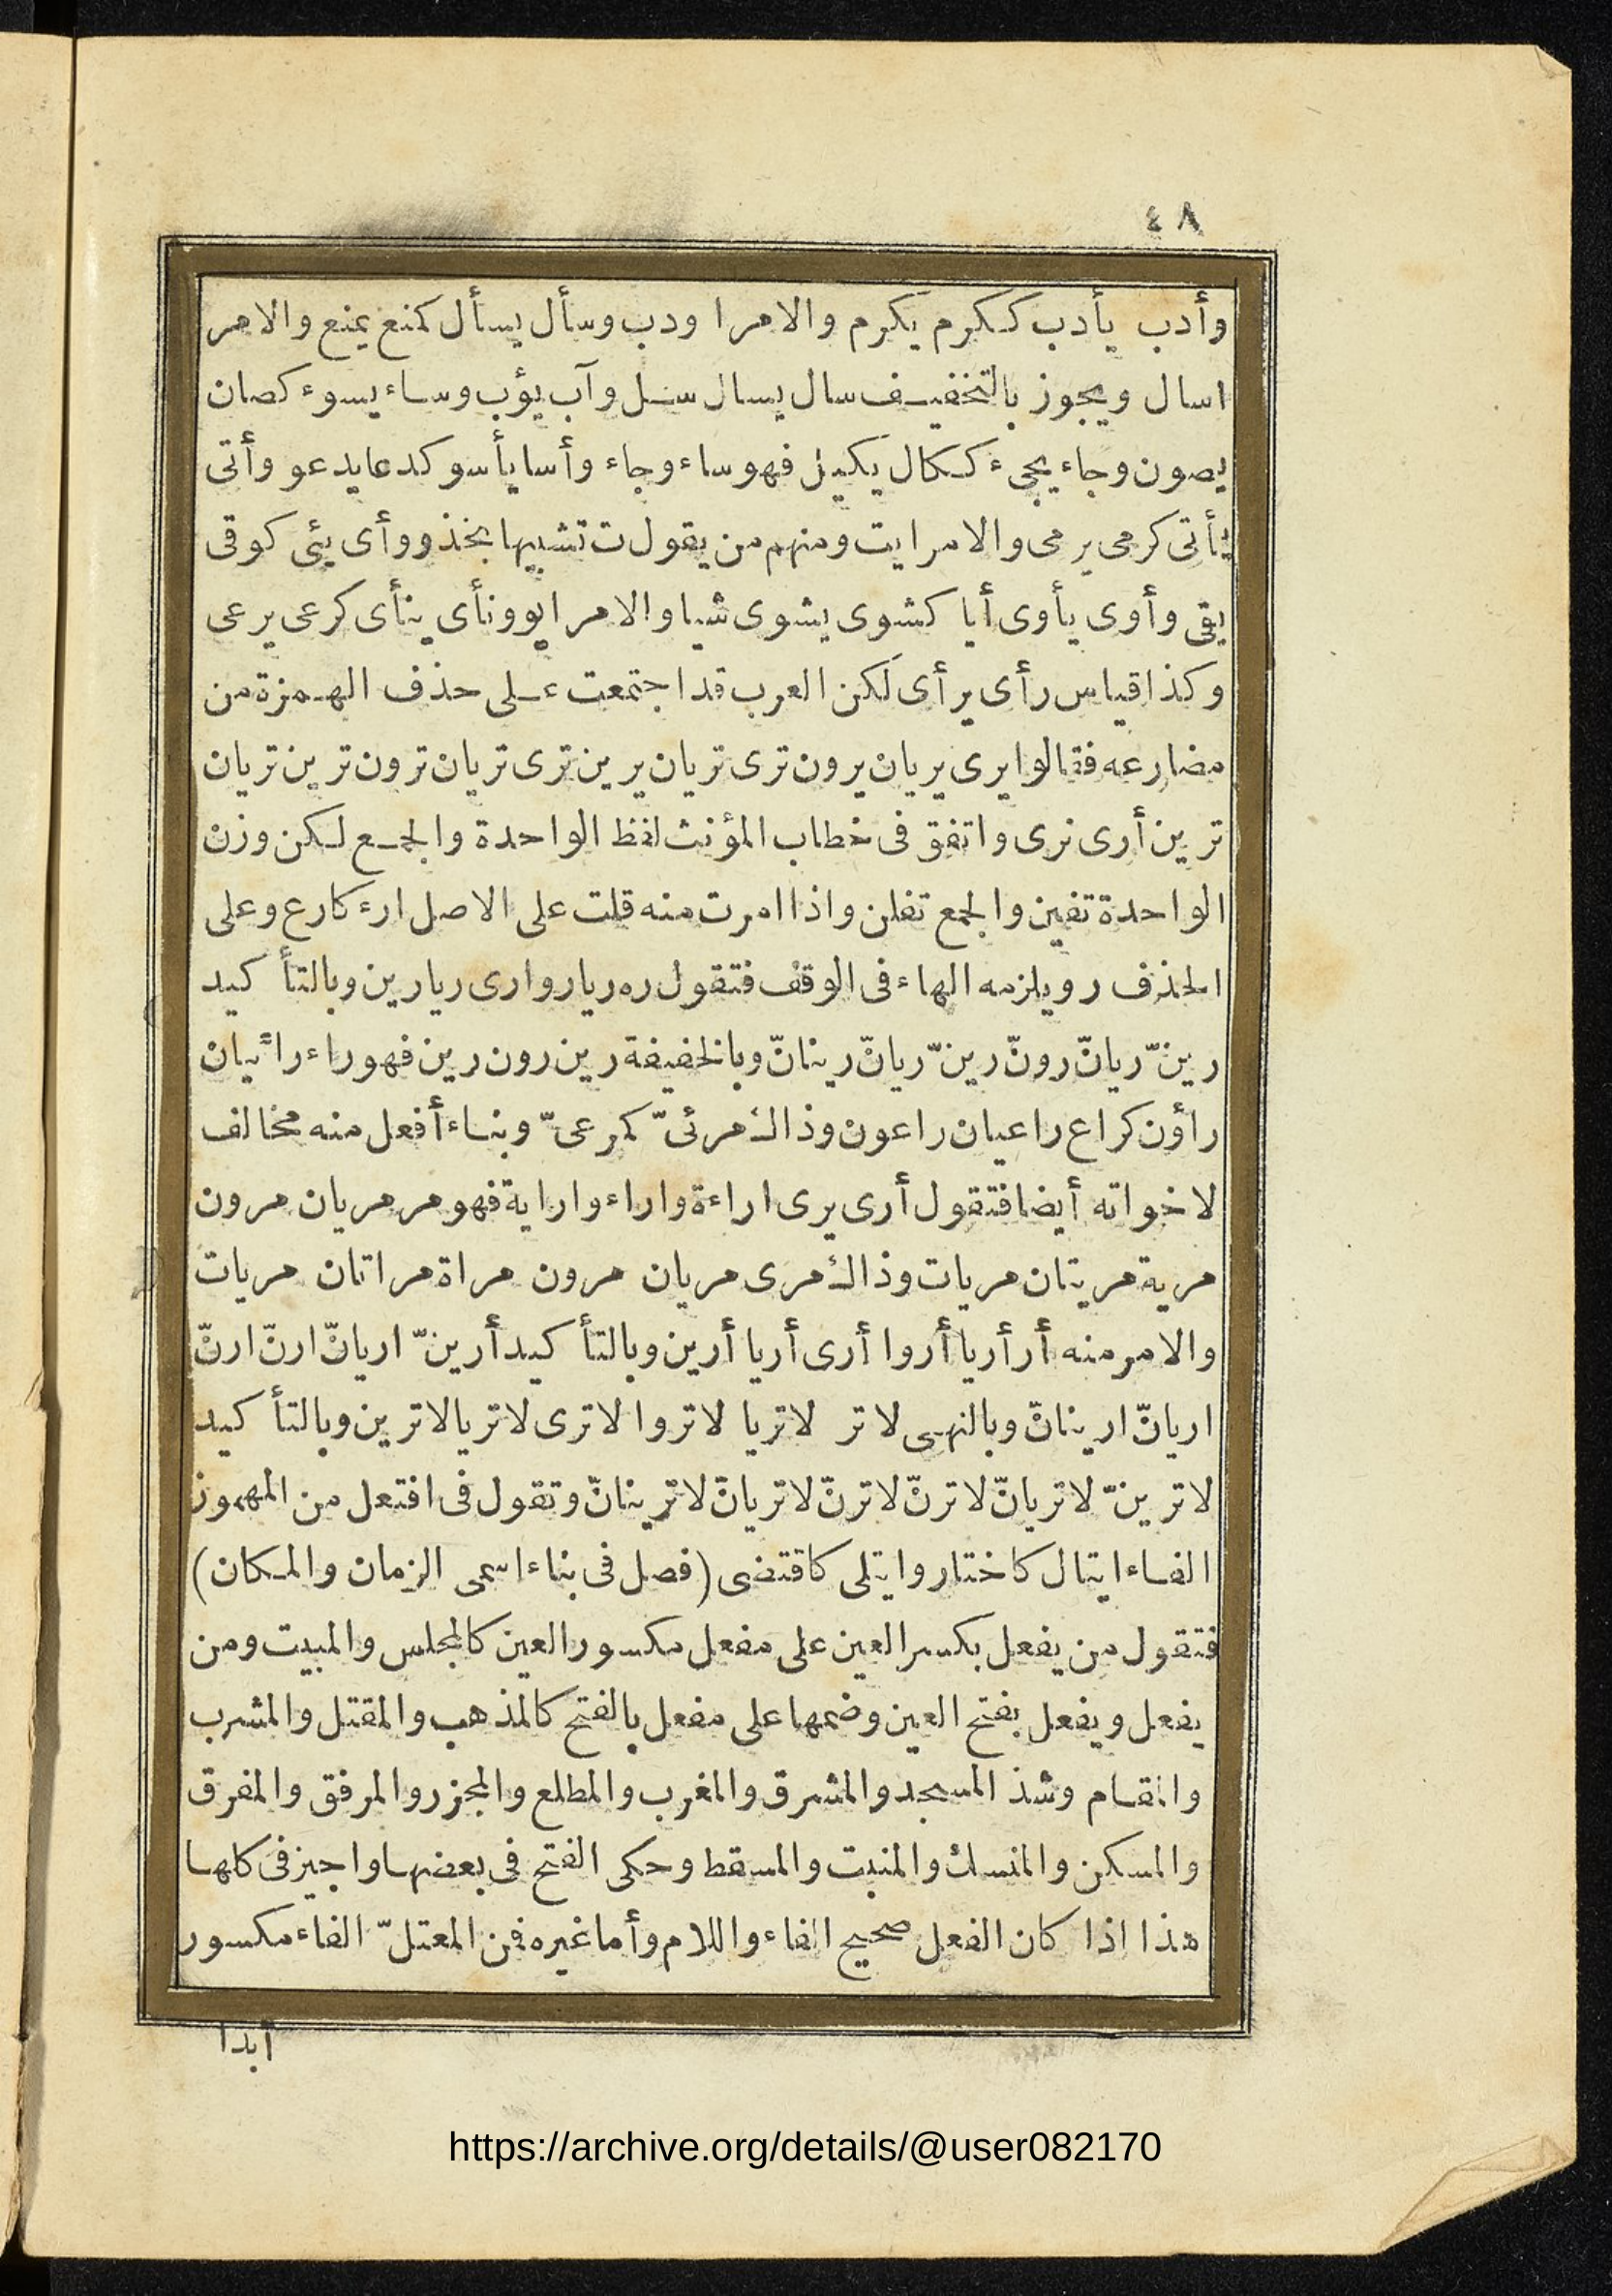 ٤٨
وأدب يأدب ككرم يكرم والامر اودب وسأل يسأل كمنع يمنع والامر
اسال ويجوز بالتخفيف سال يسال سل وآب يؤب وساء يسوء كصان
يصون وجاء يجىء ككال يكيل فهو ساء وجاء وأسا يأسو كدعا يدعو وأتى
يأتى كرمى يرمى والامر ايت ومنهم من يقول ت تشبيها بخذ ووأى يئى كوقى
يقى وأوى يأوى أيا كشوى يشوى شيا والامر ايو ونأى ينأى كرعى يرعى
وكذا قياس رأى يرأى لكن العرب قد اجتمعت على حذف الهمزة من
مضارعه فقالوا يرى يريان يرون ترى تريان يرين ترى تريان ترون ترين تريان
ترين أرى نرى واتفق فى خطاب المؤنث لفظ الواحدة والجمع لكن وزن
الواحدة تفين والجمع تفلن واذا امرت منه قلت على الاصل ارء كارع وعلى
الحذف ر ويلزمه الهاء فى الوقف فتقول ره ريا روا رى ريا رين وبالتأكيد
رينّ ريانّ رونّ رينّ ريانّ رينانّ وبالخفيفة رين رون رين فهو راء رائيان
راؤن كراع راعيان راعون وذاك مرئىّ كمرعىّ وبناء أفعل منه مخالف
لاخواته أيضا فتقول أرى يرى اراءة واراء واراية فهو مر مريان مرون
مرية مريتان مريات وذاك مرى مريان مرون مراة مراتان مريات
والامر منه أر أريا أروا أرى أريا أرين وبالتأكيد أرينّ اريانّ ارنّ ارنّ
اريانّ ارينانّ وبالنهى لا تر لا تريا لا تروا لا ترى لا تريا لا ترين وبالتأكيد
لا ترينّ لا تريانّ لا ترنّ لا ترنّ لا تريانّ لا ترينانّ وتقول فى افتعل من المهموز
الفاء ايتال كاختار وايتلى كاقتضى (فصل فى بناء اسمى الزمان والمكان)
فتقول من يفعل بكسر العين على مفعل مكسور العين كالمجلس والمبيت ومن
يفعل ويفعل بفتح العين وضمها على مفعل بالفتح كالمذهب والمقتل والمشرب
والمقام وشذ المسجد والمشرق والمغرب والمطلع والمجزر والمرفق والمفرق
والمسكن والمنسك والمنبت والمسقط وحكى الفتح فى بعضها واجيز فى كلها
هذا اذا كان الفعل صحيح الفاء واللام وأما غيره فمن المعتلّ الفاء مكسور
أبدا
https://archive.org/details/@user082170